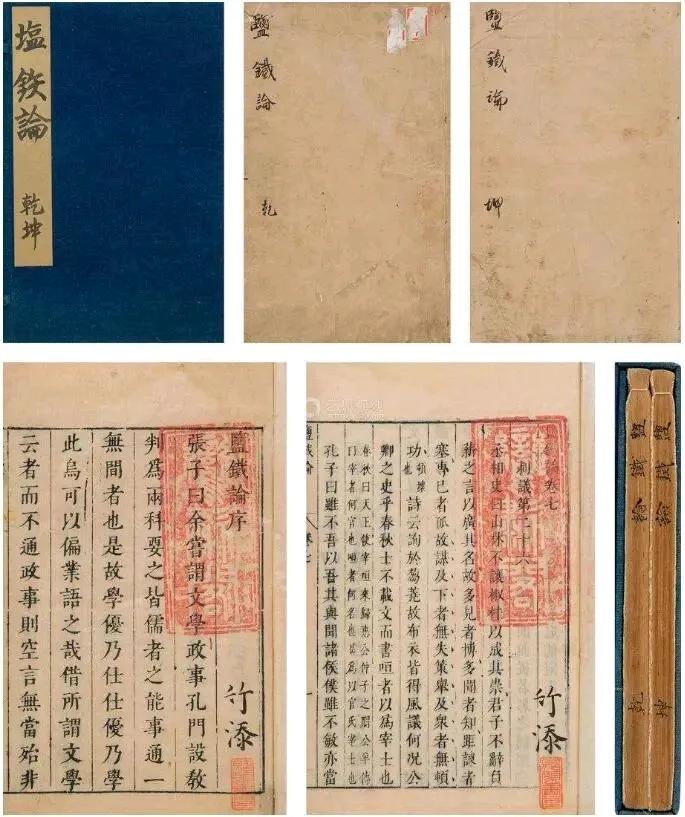 塩鉄論 乾坤
鹽鐵論 乾
鹽鐵論 坤
鹽鐵論序
張子曰余嘗謂文學政事孔門設教
判爲兩科要之皆儒者之能事通一
無間者也是故學優乃仕仕優乃學
此烏可以偏業語之哉借所謂文學
云者而不通政事則空言無當殆非
竹添
鹽鐵論卷七
刺議第二十六
丞相史曰山林不讓椒桂以成其崇君子不辭負
薪之言以廣其名故多見者博多聞者知距諫者
塞專己者孤故謀及下者無失策舉及衆者無頓
功 詩云詢於芻蕘故布衣皆得風議何況公
卿之史乎春秋士不載文而書咺者以爲宰士也
春秋曰天王使宰咺來歸惠公仲子之賵公羊傳
曰宰者何官也咺者何名也曷爲以官氏宰士也
孔子曰雖不吾以吾其與聞諸侯僕雖不敏亦當
鹽鐵論 卷七
竹添
鹽鐵論 坤
鹽鐵論 乾